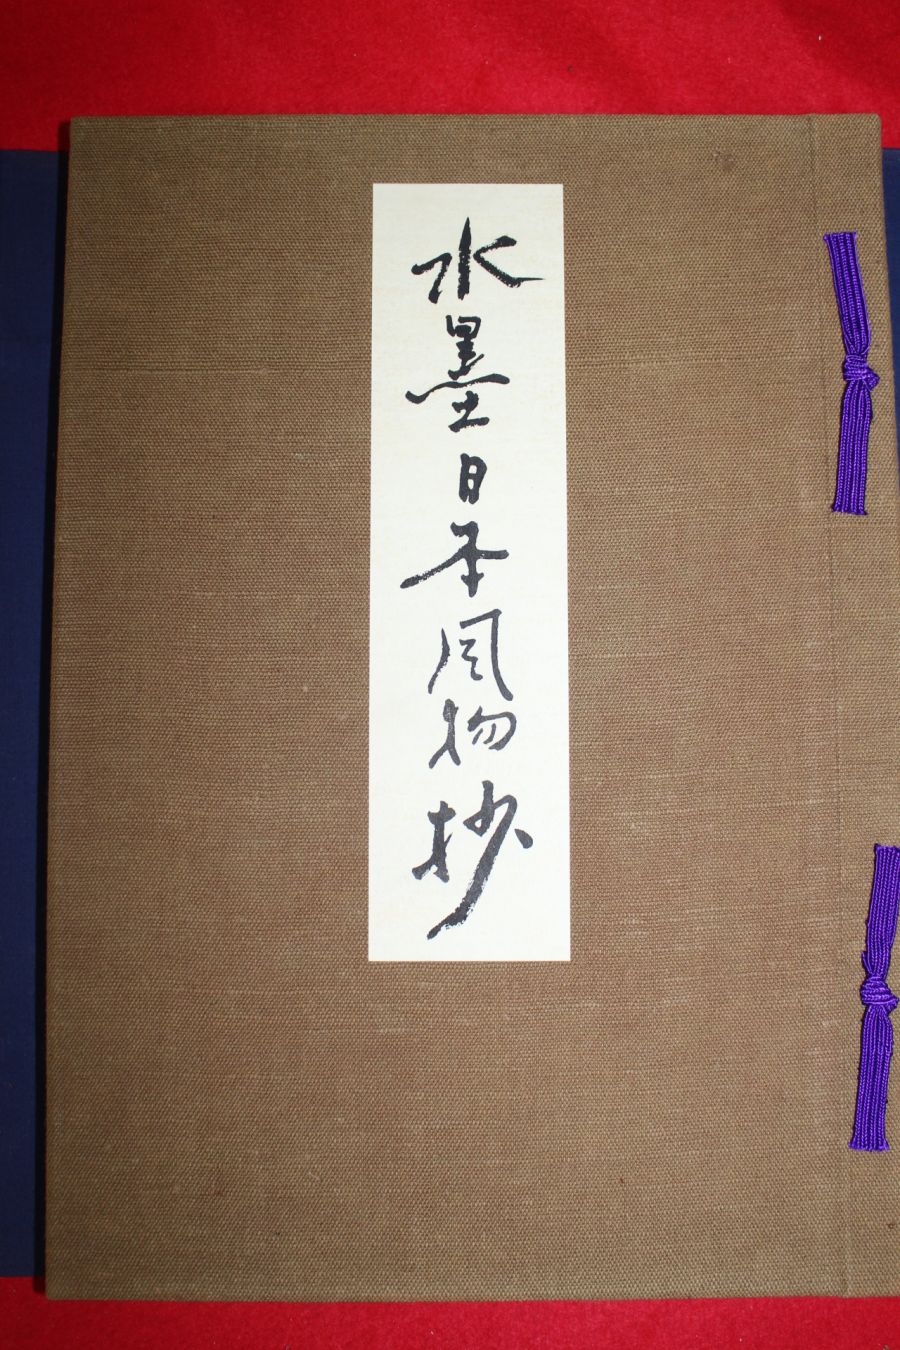 水墨日本風物抄